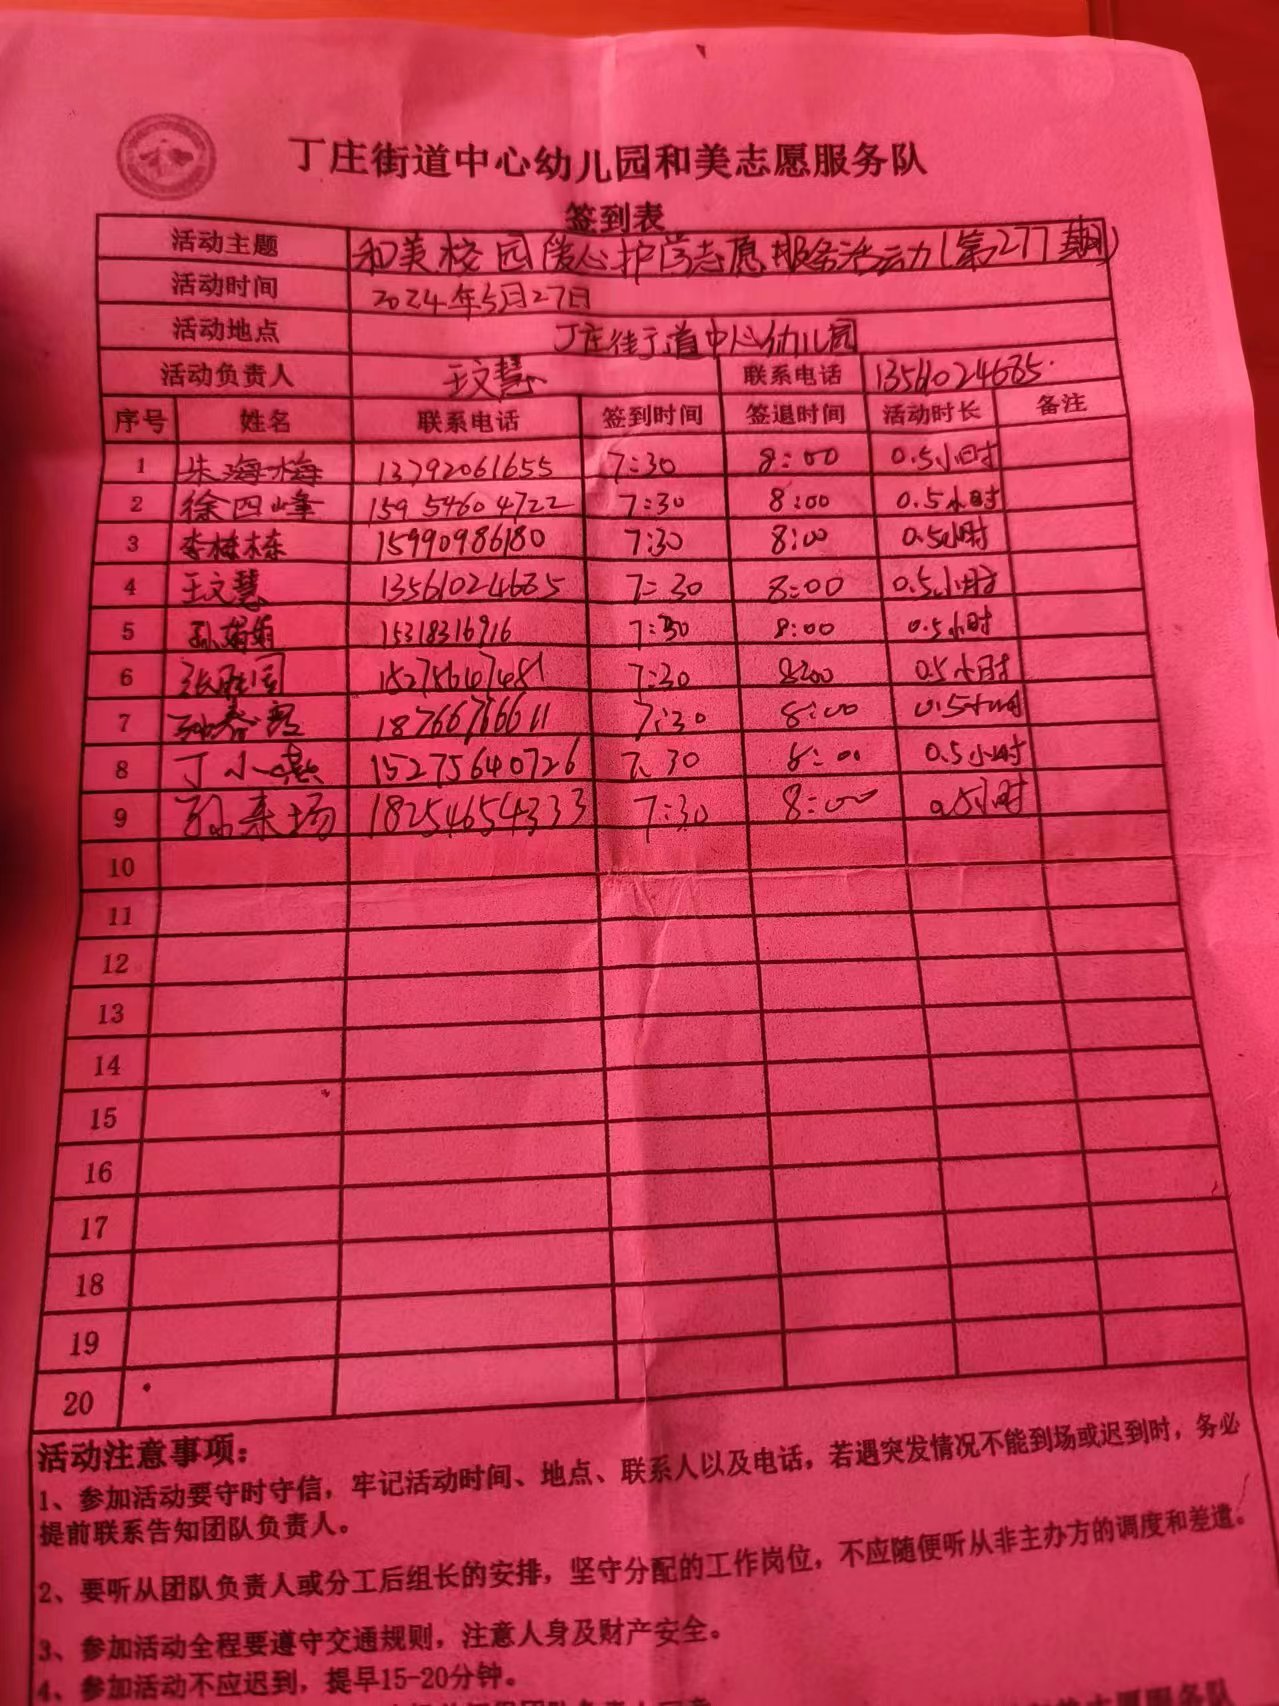 丁庄街道中心幼儿园和美志愿服务队
签到表
活动主题 和美校园暖心护学志愿服务活动(第277期)
活动时间 2024年5月27日
活动地点 丁庄街道中心幼儿园
活动负责人 王文慧 联系电话 13561024685
序号 姓名 联系电话 签到时间 签退时间 活动时长 备注
1 朱海梅 13792061655 7:30 8:00 0.5小时
2 徐四峰 15954604722 7:30 8:00 0.5小时
3 李栋栋 15990986180 7:30 8:00 0.5小时
4 王文慧 13561024685 7:30 8:00 0.5小时
5 孙娟娟 15318316916 7:30 8:00 0.5小时
6 15275647481 7:30 8:00 0.5小时
7 18766776611 7:30 8:00 0.5小时
8 丁小燕 15275640726 7:30 8:00 0.5小时
9 孙来场 18254654333 7:30 8:00 0.5小时
10
11
12
13
14
15
16
17
18
19
20
活动注意事项:
1、参加活动要守时守信，牢记活动时间、地点、联系人以及电话，若遇突发情况不能到场或迟到时，务必
提前联系告知团队负责人。
2、要听从团队负责人或分工后组长的安排，坚守分配的工作岗位，不应随便听从非主办方的调度和差遣。
3、参加活动全程要遵守交通规则，注意人身及财产安全。
4、参加活动不应迟到，提早15-20分钟。
志愿服务队